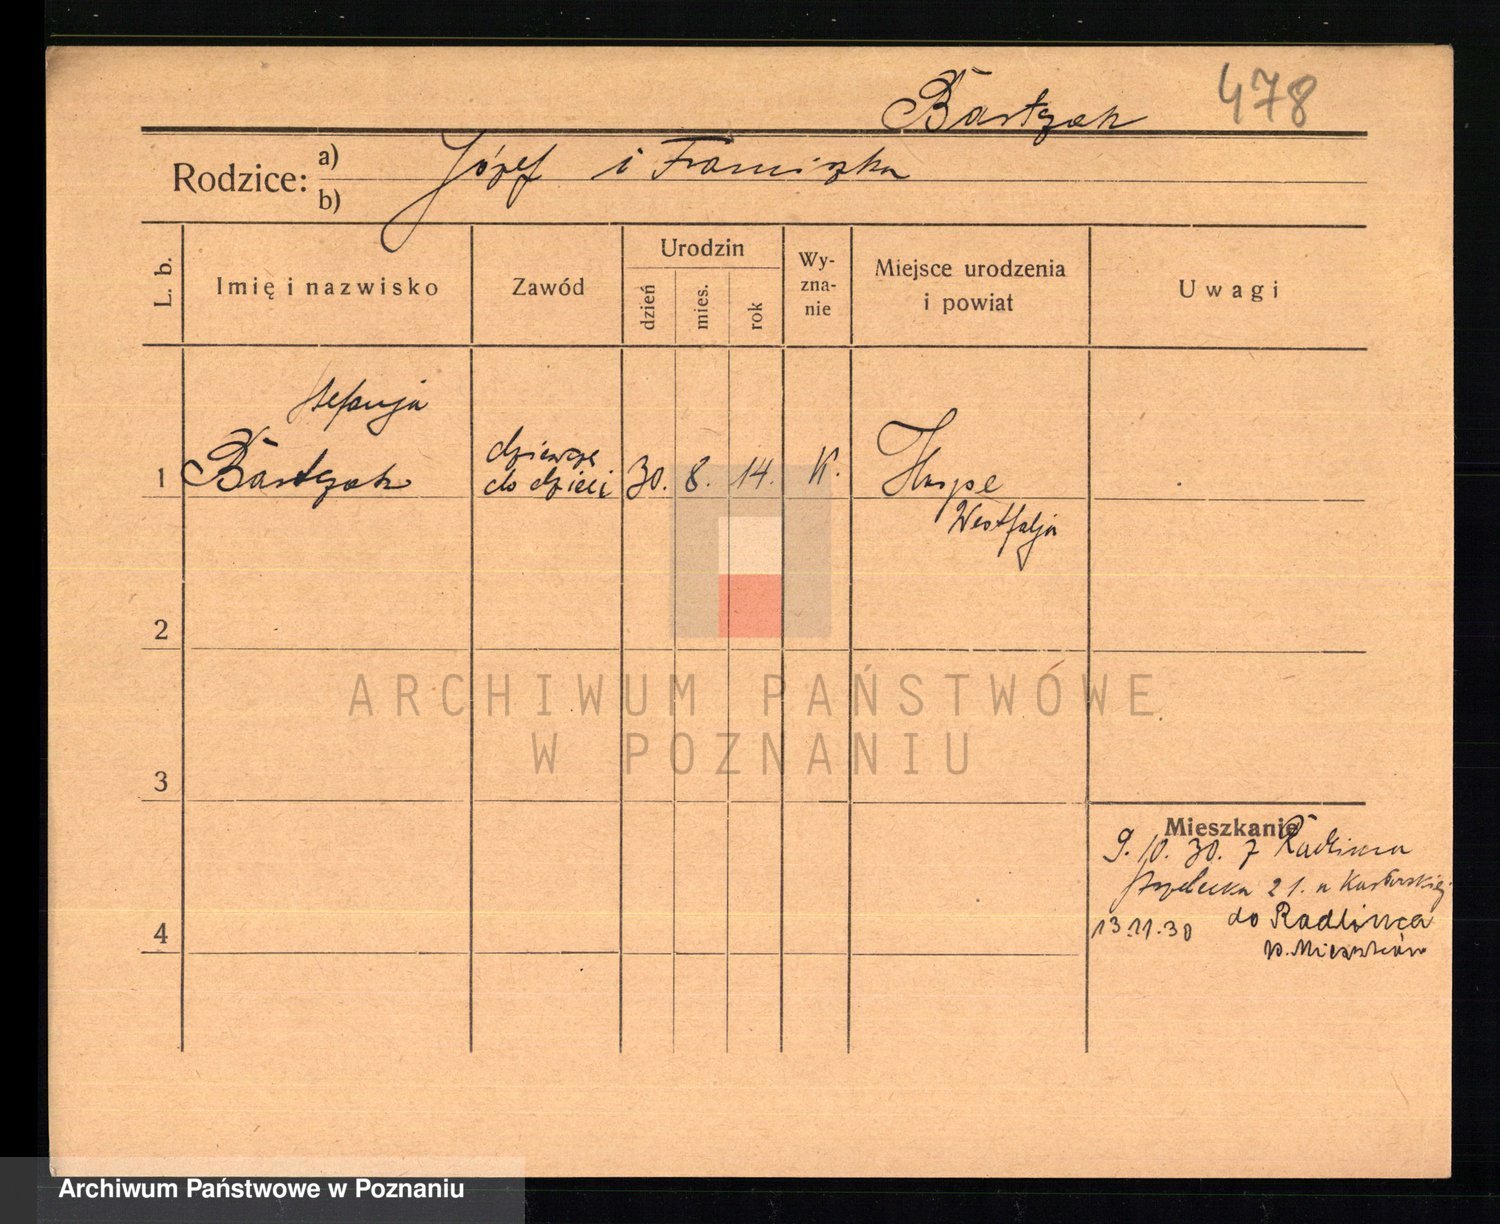 Bartczak 478
Rodzice: a) Józef i Franciszka
b)
L. b.
Imię i nazwisko
Zawód
Urodzin
dzień
mies.
rok
Wy-
zna-
nie
Miejsce urodzenia
i powiat
Uwagi
Stefanja
1 Bartczak
dziewczę
do dzieci
30. 8. 14. K.
Haspe
Westfalja
2
3
4
Mieszkanie
9. 10. 30. z Radlinca
Strzelecka 21. u
13.11.30 do Radlinca
p. Mieszków
ARCHIWUM PAŃSTWOWE
W POZNANIU
Archiwum Państwowe w Poznaniu